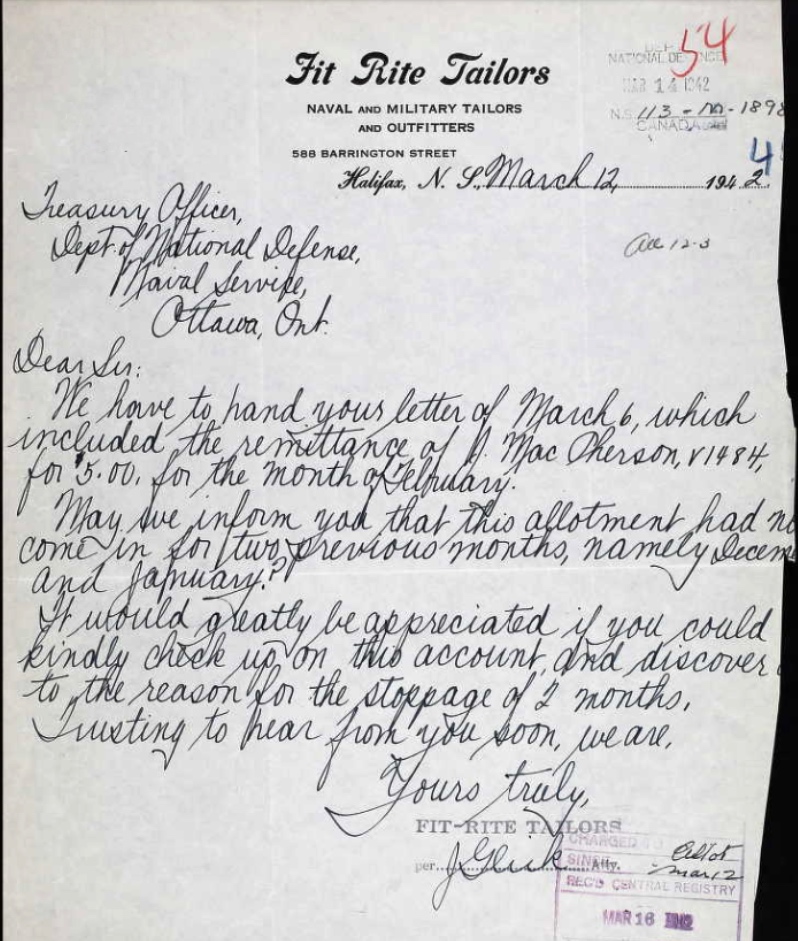 54
DEPT
NATIONAL DEFENCE
MAR 14 1942
N.S. 113-M-1898
CANADA
4
Fit Rite Tailors
NAVAL AND MILITARY TAILORS
AND OUTFITTERS
588 BARRINGTON STREET
Halifax, N. S., March 12, 1942.
Treasury Officer,
Dept. of National Defense,
Naval Service,
Ottawa, Ont.
12-3
Dear Sir:
We have to hand your letter of March 6, which
included the remittance of J. Mac Pherson, V1484,
for $5.00, for the month of February.
May we inform you that this allotment had no
come in for two previous months, namely Decem
and January?
It would greatly be appreciated if you could
kindly check up on this account, and discover
to the reason for the stoppage of 2 months.
Trusting to hear from you soon, we are,
Yours truly,
FIT-RITE TAILORS
per J Glick Atty.
CHARGED TO
SINCE
Mar 12
REC'D CENTRAL REGISTRY
MAR 16 1942